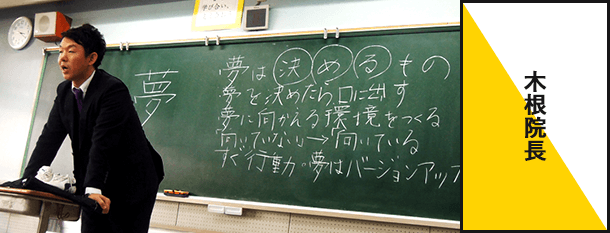 夢
夢は決めるもの
夢を決めたら口に出す
夢に向かえる環境をつくる
向いていない→向いている
すぐ行動力。夢はバージョンアップ
木根院長